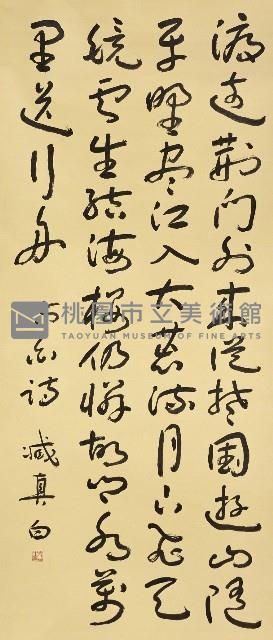 渡遠荆門外來從楚國遊山隨
平野盡江入大荒流月下飛天
鏡雲生結海樓仍憐故鄉水萬
里送行舟 李白詩 臧真白
桃園市立美術館
TAOYUAN MUSEUM OF FINE ARTS